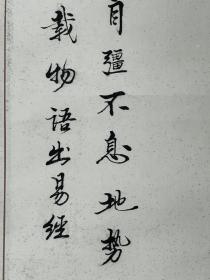 自彊不息地势
载物语出易經